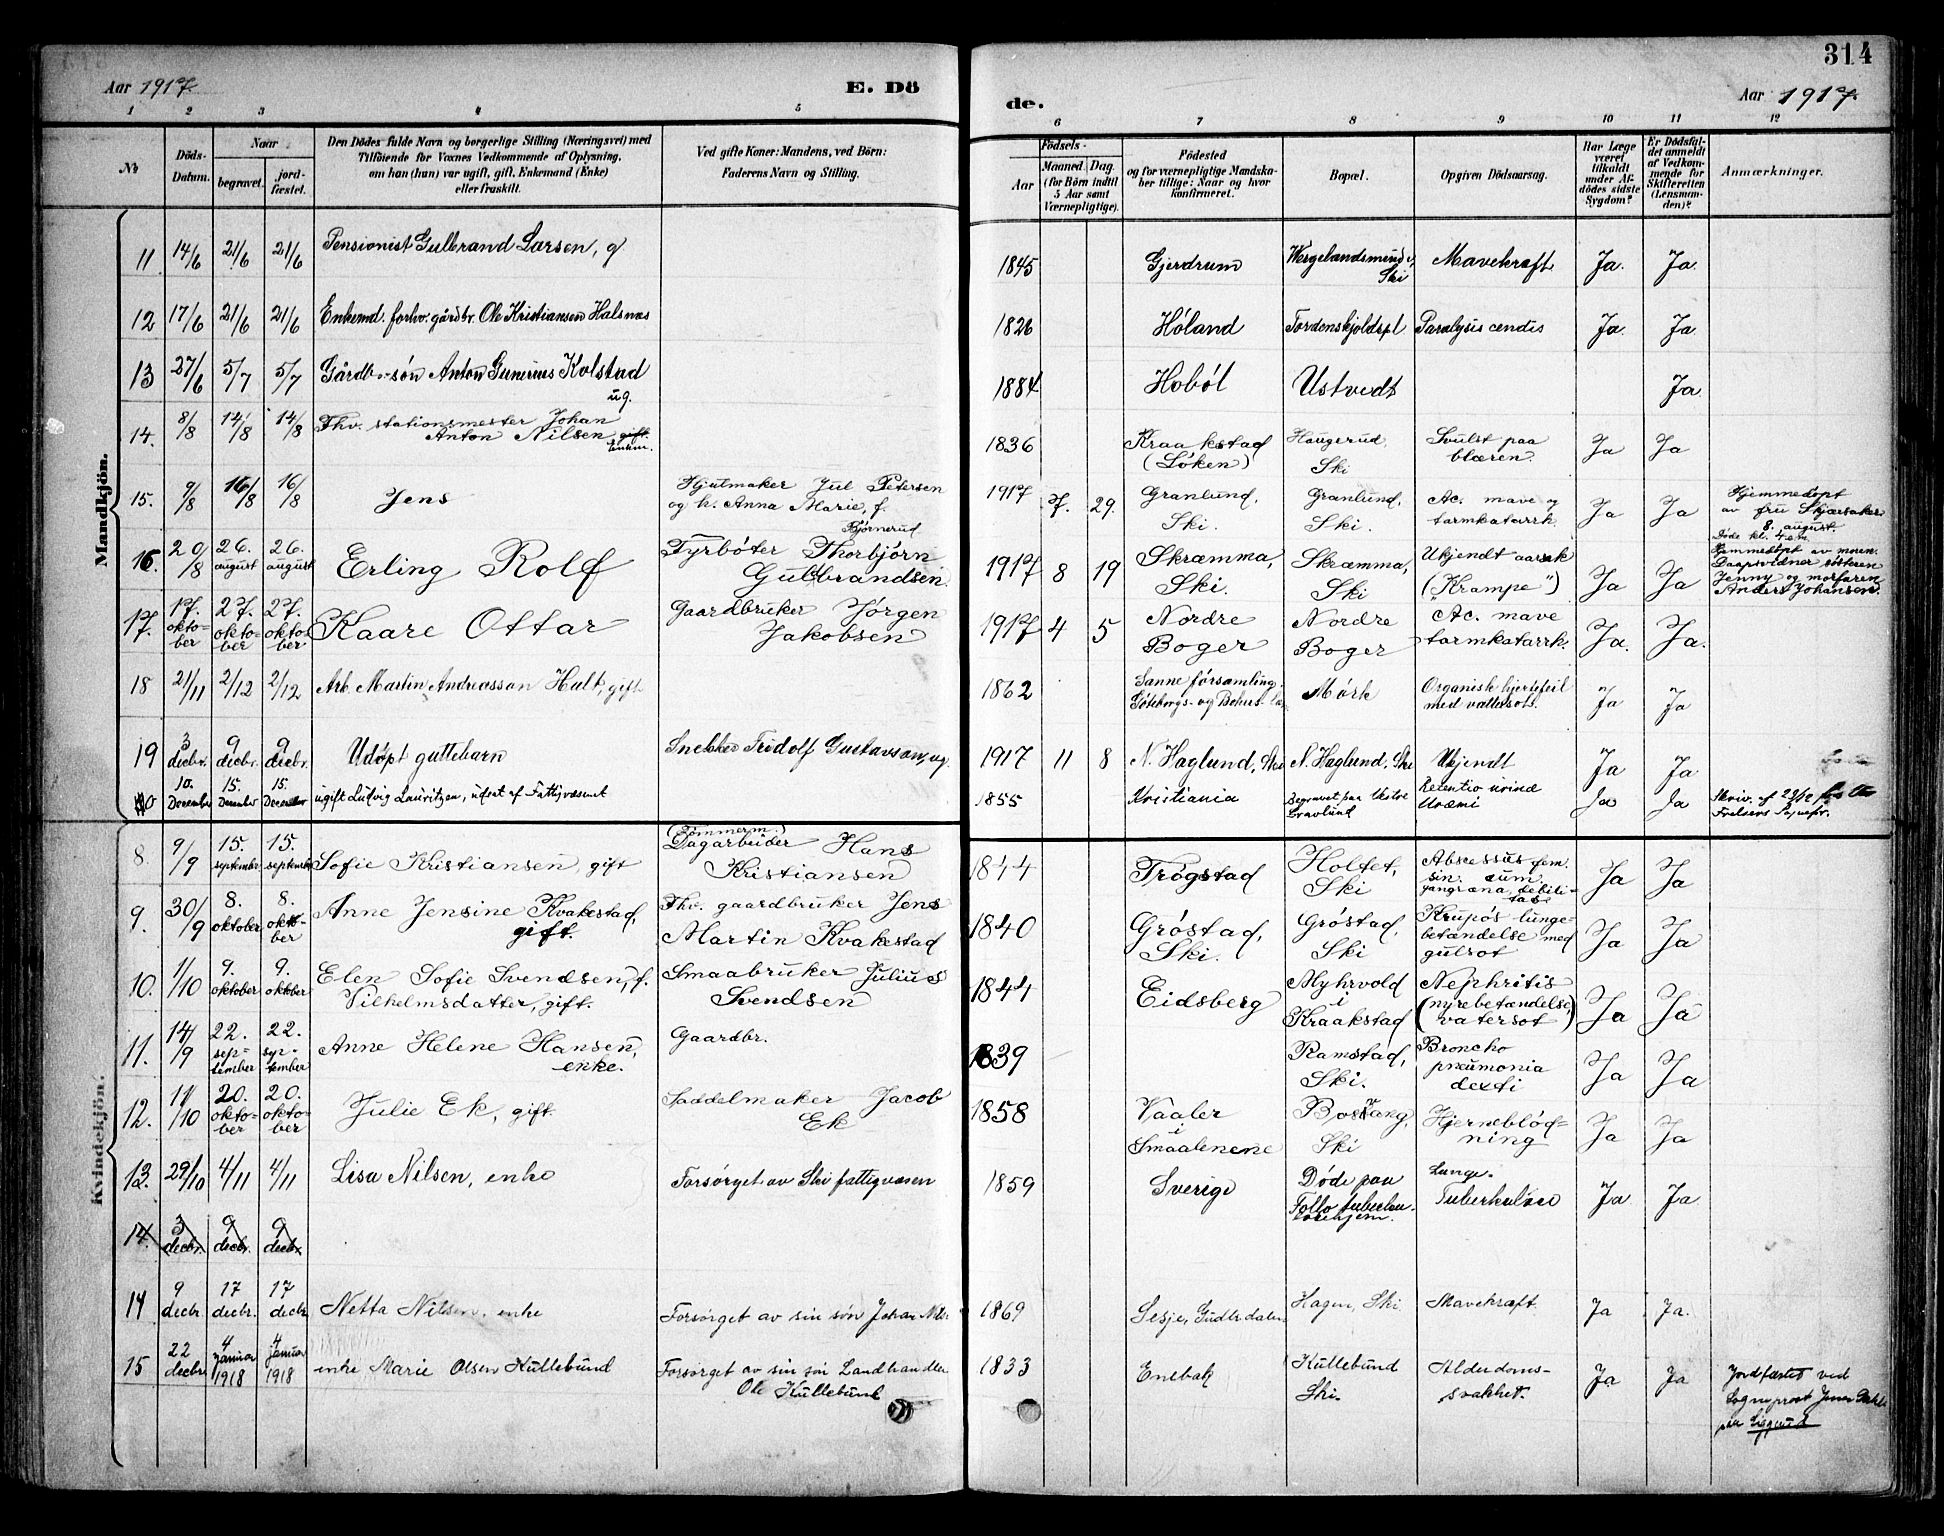 314
Aar 1917.
E. Dö
de.
Aar 1917.
1 2 3 4 5 6 7 8 9 10 11 12
No
Döds-Datum.
Naar
begravet.
jord-fæstet.
Den Dödes fulde Navn og borgerlige Stilling (Næringsvei) med
Tilföiende for Voxnes Vedkommende af Oplysning,
om han (hun) var ugift, gift, Enkemand (Enke)
eller fraskilt.
Ved gifte Koner: Mandens, ved Börn:
Faderens Navn og Stilling.
Födsels-
Aar
Maaned. Dag.
(for Börn indtil
5 Aar samt
Værnepligtige).
Födested
og for værnepligtige Mandska-
ber tillige: Naar og hvor
konfirmeret.
Bopæl.
Opgiven Dödsaarsag.
Har Læge
været
tilkaldt
under Af-
dödes sidste
Sygdom?
Er Dödsfal-
det anmeldt
af Vedkom-
mende for
Skifteretten
(Lensman-
den)?
Anmærkninger.
Mandkjön.
11 14/6 21/6 21/6 Pensionist Gulbrand Larsen, g 1845 Gjerdrum Ski Mavekræft Ja. Ja.
12 17/6 21/6 21/6 Enkemd. forhv. gårdbr. Ole Kristiansen Halsnæs 1826 Höland Tordenskjoldspl Paralysis Ja. Ja.
13 27/6 5/7 5/7 Gårdbr.-sön Anton Gunerius Kolstad
ug. 1884 Hoböl Ustvedt Ja
14. 8/8 14/8 14/8 Fhv. stationsmester Johan
Anton Nilsen gift.
Enkem. 1836 Kraakstad
(Löken) Haugerud,
Ski Svulst paa
blæren. Ja Ja
15. 9/8 16/8 16/8 Jens Hjulmaker Jul Petersen
og h. Anna Marie, f.
Björnerud 1917 7. 29. Granlund,
Ski. Granlund,
Ski. Ac. mave og
tarmkatarrh. Ja Ja Hjemmedöpt
av fru Skjærsaker
8. august.
16. 20/8 26. august 26. august Erling Rolf Fyrböter Thorbjörn
Gulbrandsen. 1917 8 19 Skræmma,
Ski. Skræmma,
Ski Ukjendt aarsak
("Krampe") Ja Ja Döde kl. 4 e.m.
Hjemmedöpt av moren.
Daapsvidner søsteren
Jenny og morfaren
Anders Johansen.
17. 17. oktober 27. oktober 27. oktober Kaare Ottar Gaardbruker Jørgen
Jakobsen 1917 4 5 Nordre
Boger Nordre
Boger Ac. mave
tarmkatarrh. Ja. Ja.
18 21/11 2/12 2/12 Arb. Martin Andreasson Hult, gift 1862 Sanne församling
Göteborgs- og Bohus- län Mörk Organisk hjertefeil
med vattersot. Ja Ja
19 3 decbr. 9 decbr. 9 decbr. Udöpt guttebarn Snekker Fridolf Gustavsson, ug. 1917 11 8 N. Haglund, Ski N. Haglund, Ski Ukjendt Ja Ja
20 10. December 15. December 15. December ugift Ludvig Lauritzen, udsat af Fattigvæsenet 1855 Kristiania Begravet paa Vestre
Gravlund Retentio urinæ
Uræmi Ja Ja Skriv. af 23/12
Frelsers
Kvindekjön.
8. 9/9 15. september 15. september Sofie Kristiansen, gift (Tömmerm.)
Dagarbeider Hans
Kristiansen 1844 Trögstad Holtet,
Ski Abscessus fem.
sin. cum
gangræna, debili-
tas Ja Ja
9. 30/9 8. oktober 8. oktober Anne Jensine Kvakestad,
gift. Fhv. gaardbruker Jens
Martin Kvakestad 1840 Gröstad,
Ski. Gröstad,
Ski Krupös lunge-
betændelse med
gulsot Ja Ja
10. 1/10 9. oktober 9. oktober Elen Sofie Svendsen, f.
Vilhelmsdatter, gift. Smaabruker Julius
Svendsen 1844 Eidsberg Myhrvold
i
Kraakstad Nephritis
(nyrebetændelse,
vatersot) Ja Ja
11. 14/9 22. sep-tember 22. sep-tember Anne Helene Hansen,
enke. Gaardbr. 1839 Ramstad,
Ski. Broncho
pneumonia
dexti Ja Ja
12. 11/10 20. oktober 20. oktober Julie Ek, gift. Saddelmaker Jacob
Ek 1858 Vaaler
i
Smaalenene Ski Hjerneblöd-
ning Ja Ja
13. 29/10 4/11 4/11 Lisa Nilsen, enke Forsörget av Ski fattigvæsen 1859 Sverige Döde paa
Follo tuberku-
losehjem. Lunge-
Tuberkulose Ja Ja
14. 3 decbr. 9 decbr. 9 decbr.
14 9 decbr. 17 decbr. 17 decbr. Netta Nilsen, enke Forsörget av sin sön Johan Nils. 1869 Lesje, Gudbrdalen Hagen, Ski. Mavekræft. Ja Ja.
15 22 decbr. 4 januar 1918 4 januar 1918 enke Marie Olsen Kullebund Forsörget av sin sön Landhandler
Ole Kullebund 1833 Enebak Kullebund
Ski. Alderdoms-
svakhet. Ja Ja Jordfæstet ved
Sogneprest